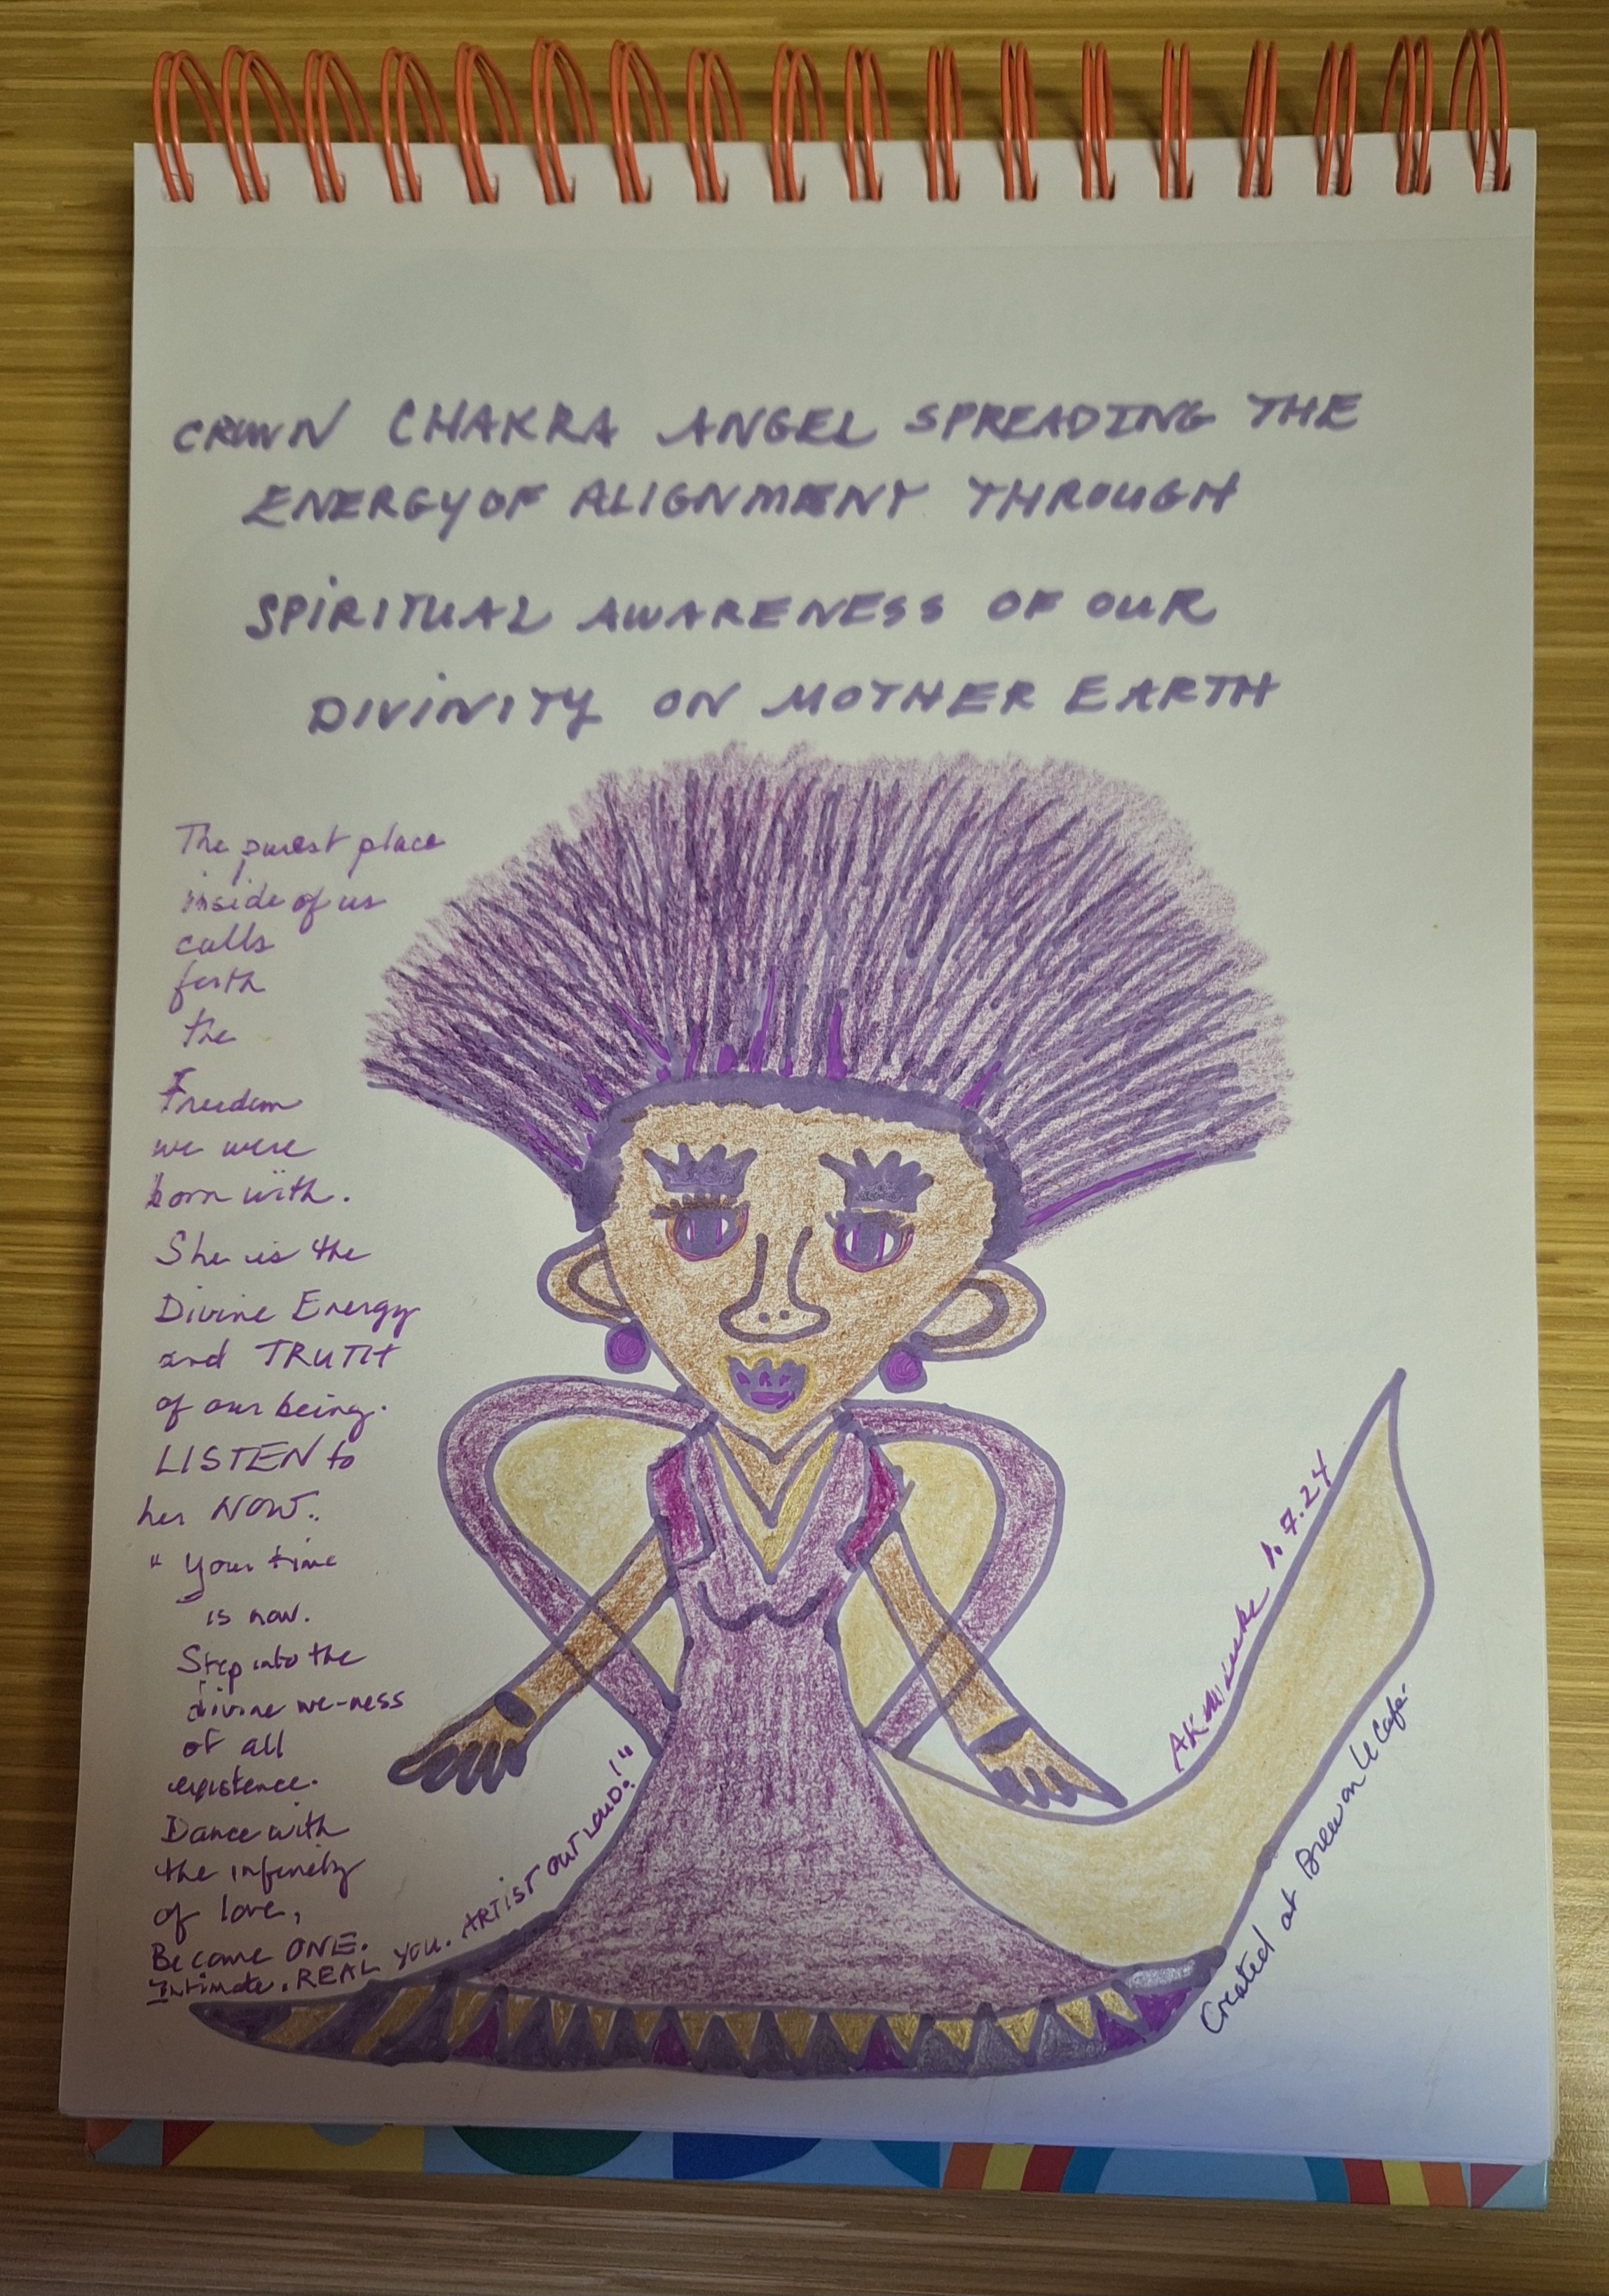 CROWN CHAKRA ANGEL SPREADING THE
ENERGY OF ALIGNMENT THROUGH
SPIRITUAL AWARENESS OF OUR
DIVINITY ON MOTHER EARTH
The purest place
inside of us
calls
forth
the
Freedom
we were
born with.
She is the
Divine Energy
and TRUTH
of our being.
LISTEN to
her NOW.
" Your time
is now.
Step into the
divine we-ness
of all
existence.
Dance with
the infinity
of love,
Become ONE.
Intimate. REAL YOU. ARTIST OUT LOUD!"
1.7.24
Created at Cafe.